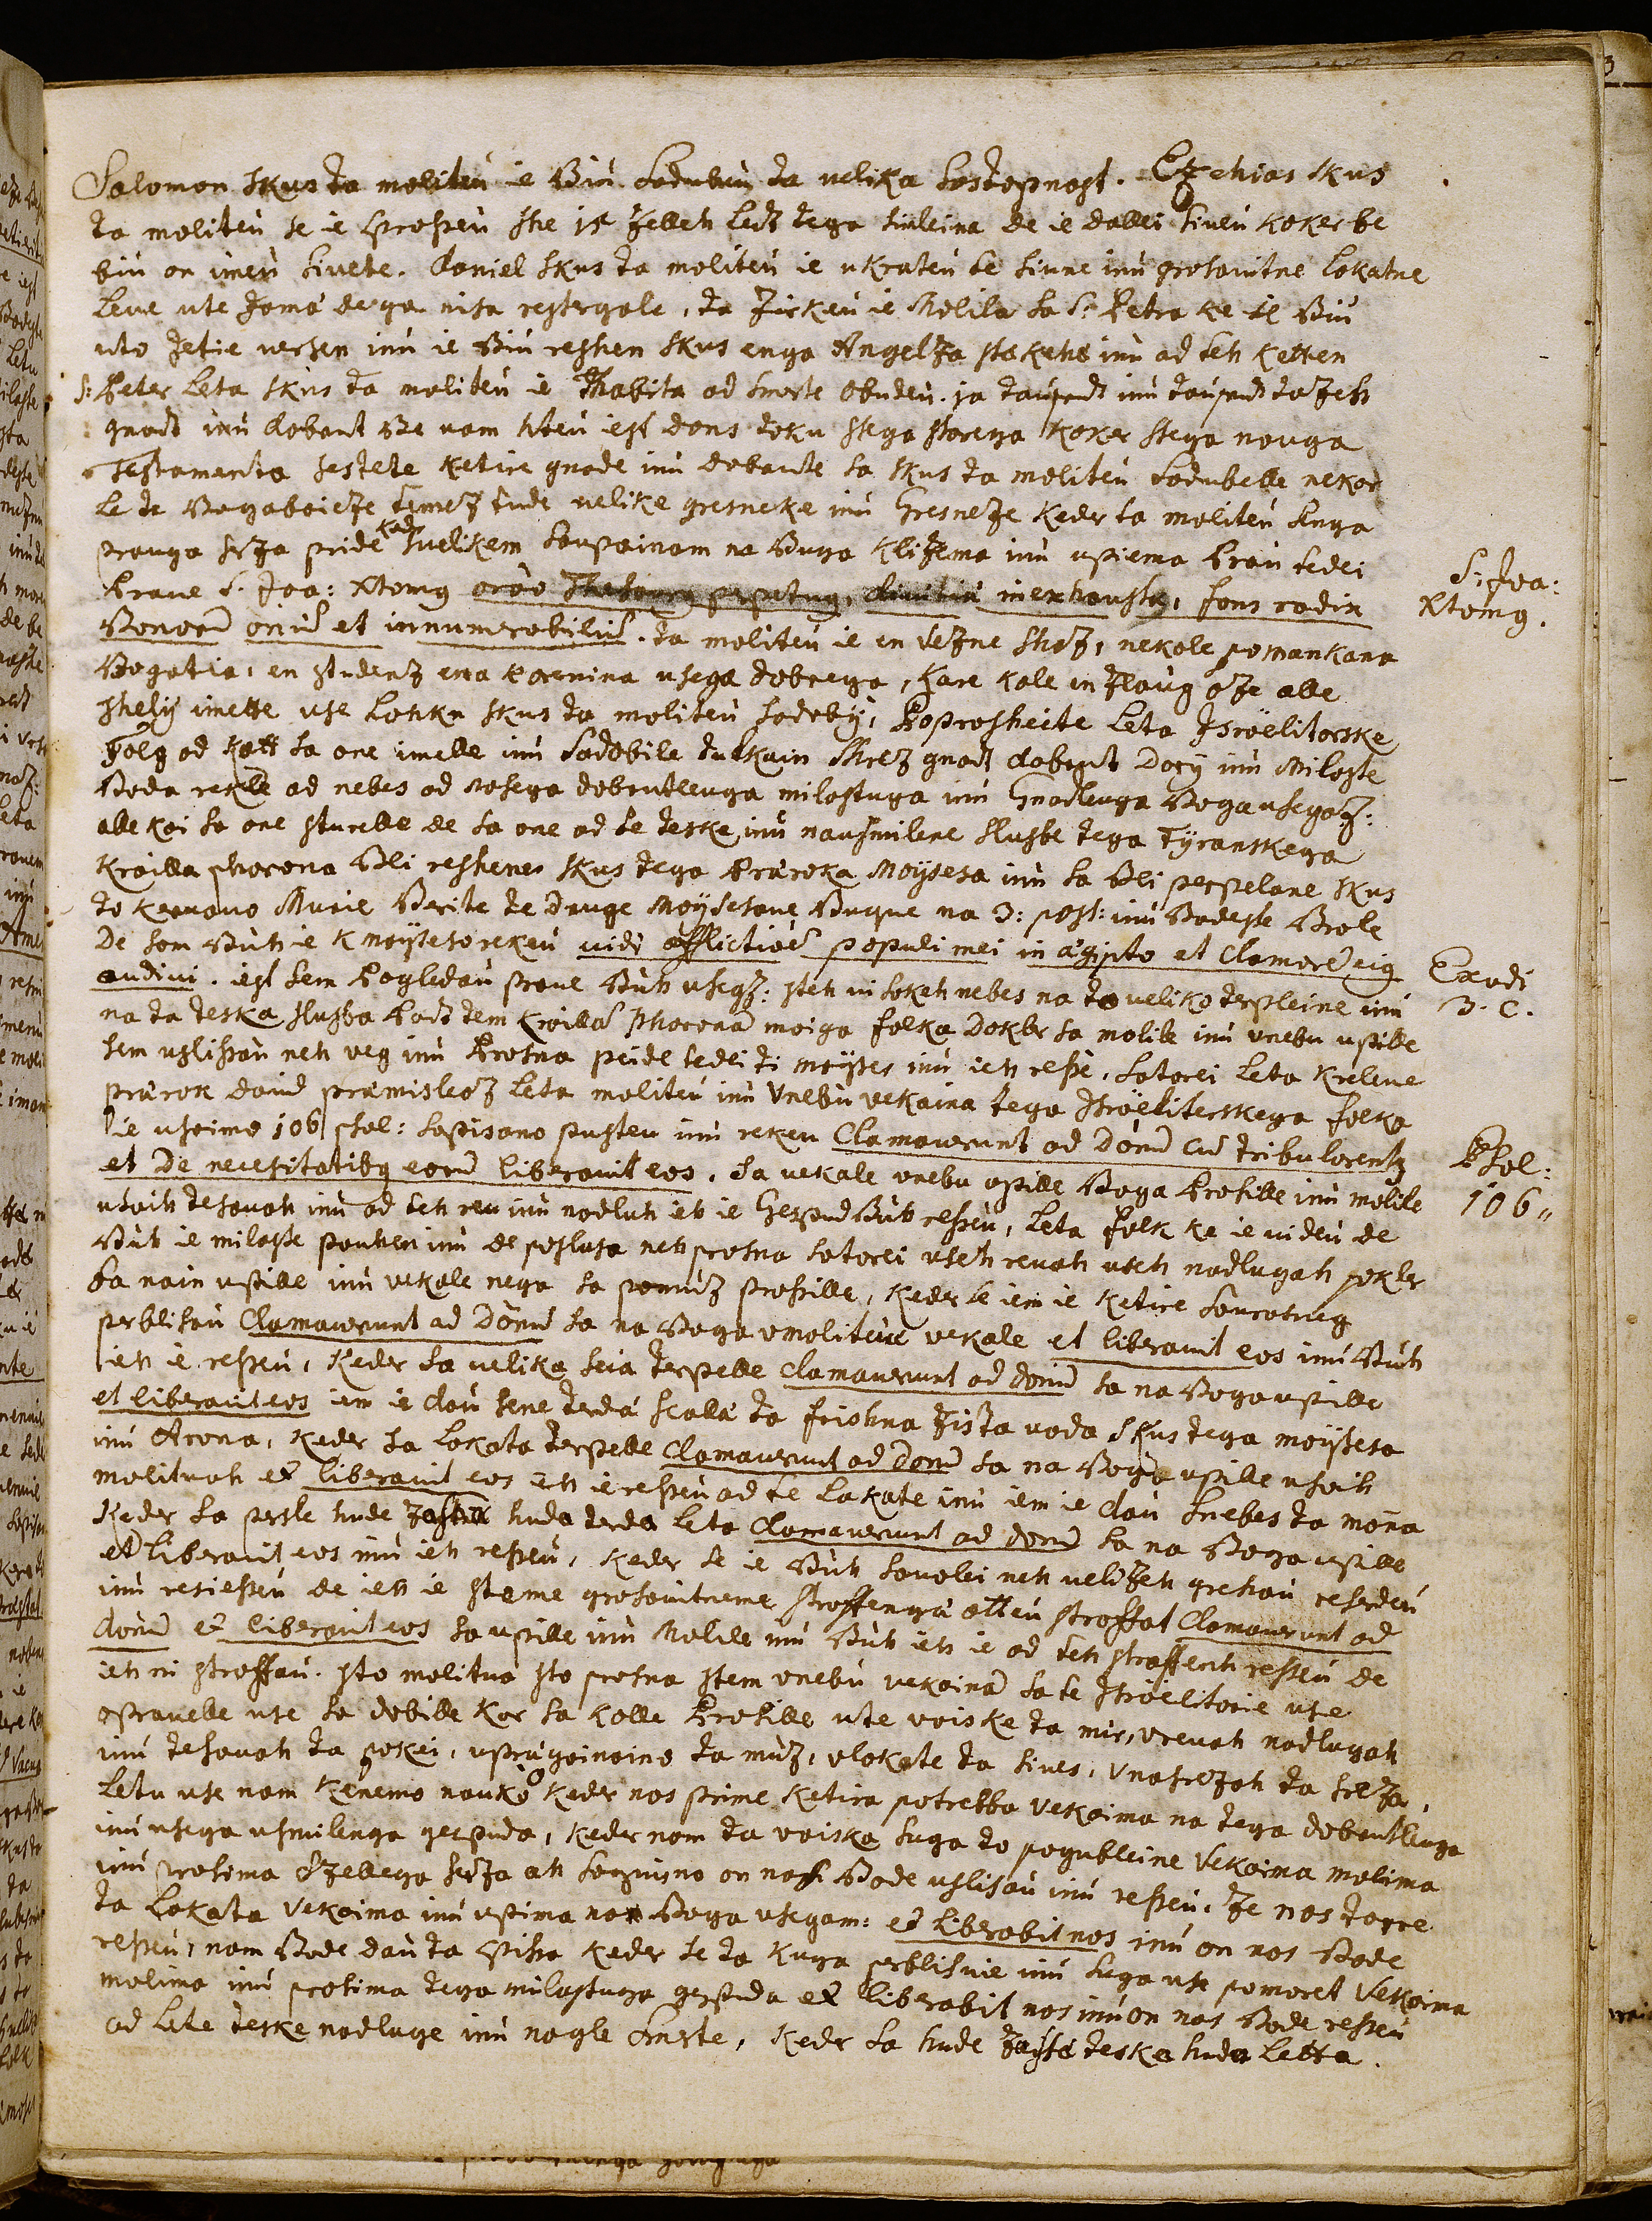 Salomon skus ta moliteu ie Biu Sadubiu ta velika Sastopnost. Ezehias skus
ta moliteu se ie sprosseu she 15 Zelleh Let tega simleina de ie dallei siveu koker be
biu on imeu sivete. Daniel skus ta moliteu ie ukrateu te siune inu grosovitne lokatne
Leve ute Jama de ga niso restergale, ta Zirkeu ie Molila sa S. Petra ke ie Biu
uto Jetie versen inu ie Biu reshen skus enga Angelza is kehe inu ad teh ketten
S: Peter leta skus ta moliteu ie Thabita od smerte obudeu. ja taushent inu taushent tazeh
gnad inu dobrut Be vam hteu iest dons toku stega starega koker stega nouga
Testamenta sestete ketire gnade inu dobrute so skus ta moliteu sadubelle nekar
le te Bogaboieze temez tude velike gresneke inu Gresneze keder ta moliteu enga
prauga serza pride kadr svelikem saupainam na Buga klizema inu upiema Prau tedei
Prave S. Joa: Xtomg orao Thesaurg perpetug, diuitiu inexhausta, fons radix
Bonorū oniū et innumerabiliū. ta moliteu ie en vezne shaz, nekole pomankana
Bogatia, en studenz ena korenina usega dobrega, kare kole en zloug oze alle
shelij imette use Lohku skus ta moliteu sadobij, Poprosheite leta Israëlitarske
Folg od kott so one imelle inu sadobile tulkain shrez gnad dobrut Dary inu Miloste
Boda rekle od nebes od nasega dobrutleuga milostuga inu Gnadleuga Boga usegaz:
alle koi so one sturelle de so one od te teske inu nausmilene slusbe tega Tyranskega
kroilla Pharona Bli reshene skus tega Praroka Moysesa inu so Bli perpelane skus
to kervavo Murie Berite te Druge Moysesove Buque na 3: post: inu Bodeste Brole
De som Buh ie k moysesorekeu vidi afflictioē populi mei in ægipto et clamorē eig
audivi. iest sem Pogledau prave Buh usegz: steh vi sokeh nebes na to veliko terpleine inu
na ta teska slusba Pod tem kroillā Pharonā moiga folka Dokler so molile inu vnebu upille
sem uslissau neh veg inu Prosna peide tedei ti moyses inu ieh resse. Satorei leta kreleve
prarok david premisleoz leta moliteu inu Vnebu vekaina tega Israëliterskega folka
ie usoimo 106 psal: sapisano pusteu inu rekeu Clamaverunt ad Dōnū cū tribularentz
et De necesitatibg eorū liberavit eos. Sa vekale vnebu upille Boga Prosille inu molile
usoih tesavah inu od teh reu inu nadluh ieh ie Gespud Buh resseu, leta folk ke ie videu de
Buh ie miloste pouhen inu de poslusa neh prosna satorei useh revah useh nadlugah pokler
so nain upille inu vekale nega sa pomuz prosille, keder se iem ie ketire sourasneg
perblisau Clamaverunt ad Dōnū so na Boga vmoliteui vekale et liberavit eos inu Buh
ieh ie resseu, keder so velika seia terpelle clamaverunt ad donū so na Boga upille
et liberavit eos iem ie dau sene terda scalla ta frishna zista voda skus tega moysesa
inu Arona, keder so Lokata terpelle clamaverunt ad Donū so na Boga upille usoih
molituah et liberavit eos ieh ie resseu od te lakate inu iem ie dau snebes ta mōna
keder so persle hude zaste huda terda leta clamaverunt ad donū so na Boga upille
et liberavit eos inu ieh resseu, keder se ie Buh savolei neh velizeh grehau reserdeu
inu resiesseu de ieh ie steme grosovitneme stroffenga otteu stroffat Clamaverunt ad
donū et liberavit eos so upille inu Molile inu Buh ieh ie od teh straffench resseu de
ieh ni stroffau. sto molitvo sto prosna stem vnebu vekainā so te Israëlitarie use
opravelle use so dobille kar so kolle Prosille ute voiske ta mir, vrevah nadlugah
inu tesavah ta pokei, upraigainaino ta muz, vlokate ta sives, Vnasrezah ta sreza,
letu use nom kenemo nauko keder nos prime ketira potrebba Vekaima na tega dobrutleuga
inu usega usmilenga gespuda, keder nom ta voiska suga to pogubleine Vekaima molima
inu prosima ozellega serza ah saguisno on nass Bode uslisau inu resseu. Ze nos tarre
ta Lokata Vekaima inu upima na Boga usegam: et liberabit nos inu on nos Bode
resseu, nom Bode dau ta Spissa keder se ta kuga perblisuie inu suga use pomoret Vekaima
molima inu prosima tega milostuga gespuda et liberabit nos inu on nos Bode resseu
od lete teske nadluge inu nagle smerte, keder so hude zaissi teske huda letta.
S: Joa:
Xtomg.
Exodi
3. C.
Psal:
106"